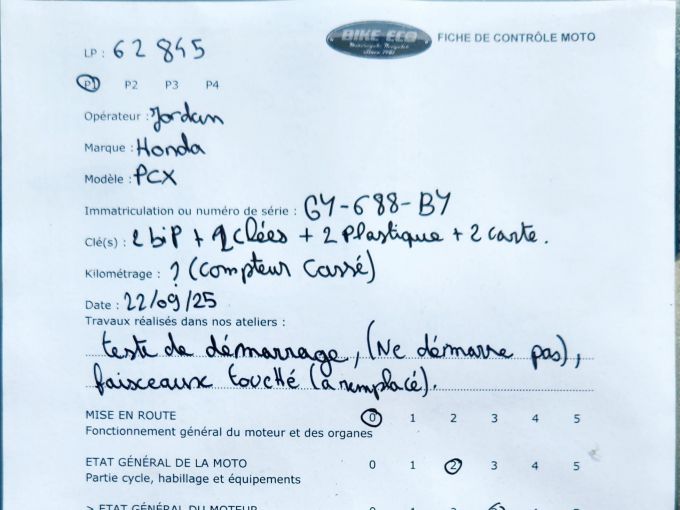 LP : 62845
BIKE ECO
Motorcycle Recycler
Since 1981
FICHE DE CONTRÔLE MOTO
P1 P2 P3 P4
Opérateur : Jordan
Marque : Honda
Modèle : PCX
Immatriculation ou numéro de série : GY-688-BY
Clé(s) : 2 bip + 2 clées + 2 Plastique + 2 carte.
Kilométrage : ? (Compteur Cassé)
Date : 22/09/25
Travaux réalisés dans nos ateliers :
teste de démarrage, (Ne démarre pas),
faisceaux touché (a remplacé).
MISE EN ROUTE 0 1 2 3 4 5
Fonctionnement général du moteur et des organes
ETAT GÉNÉRAL DE LA MOTO 0 1 2 3 4 5
Partie cycle, habillage et équipements
> ETAT GÉNÉRAL DU MOTEUR 0 1 2 3 4 5